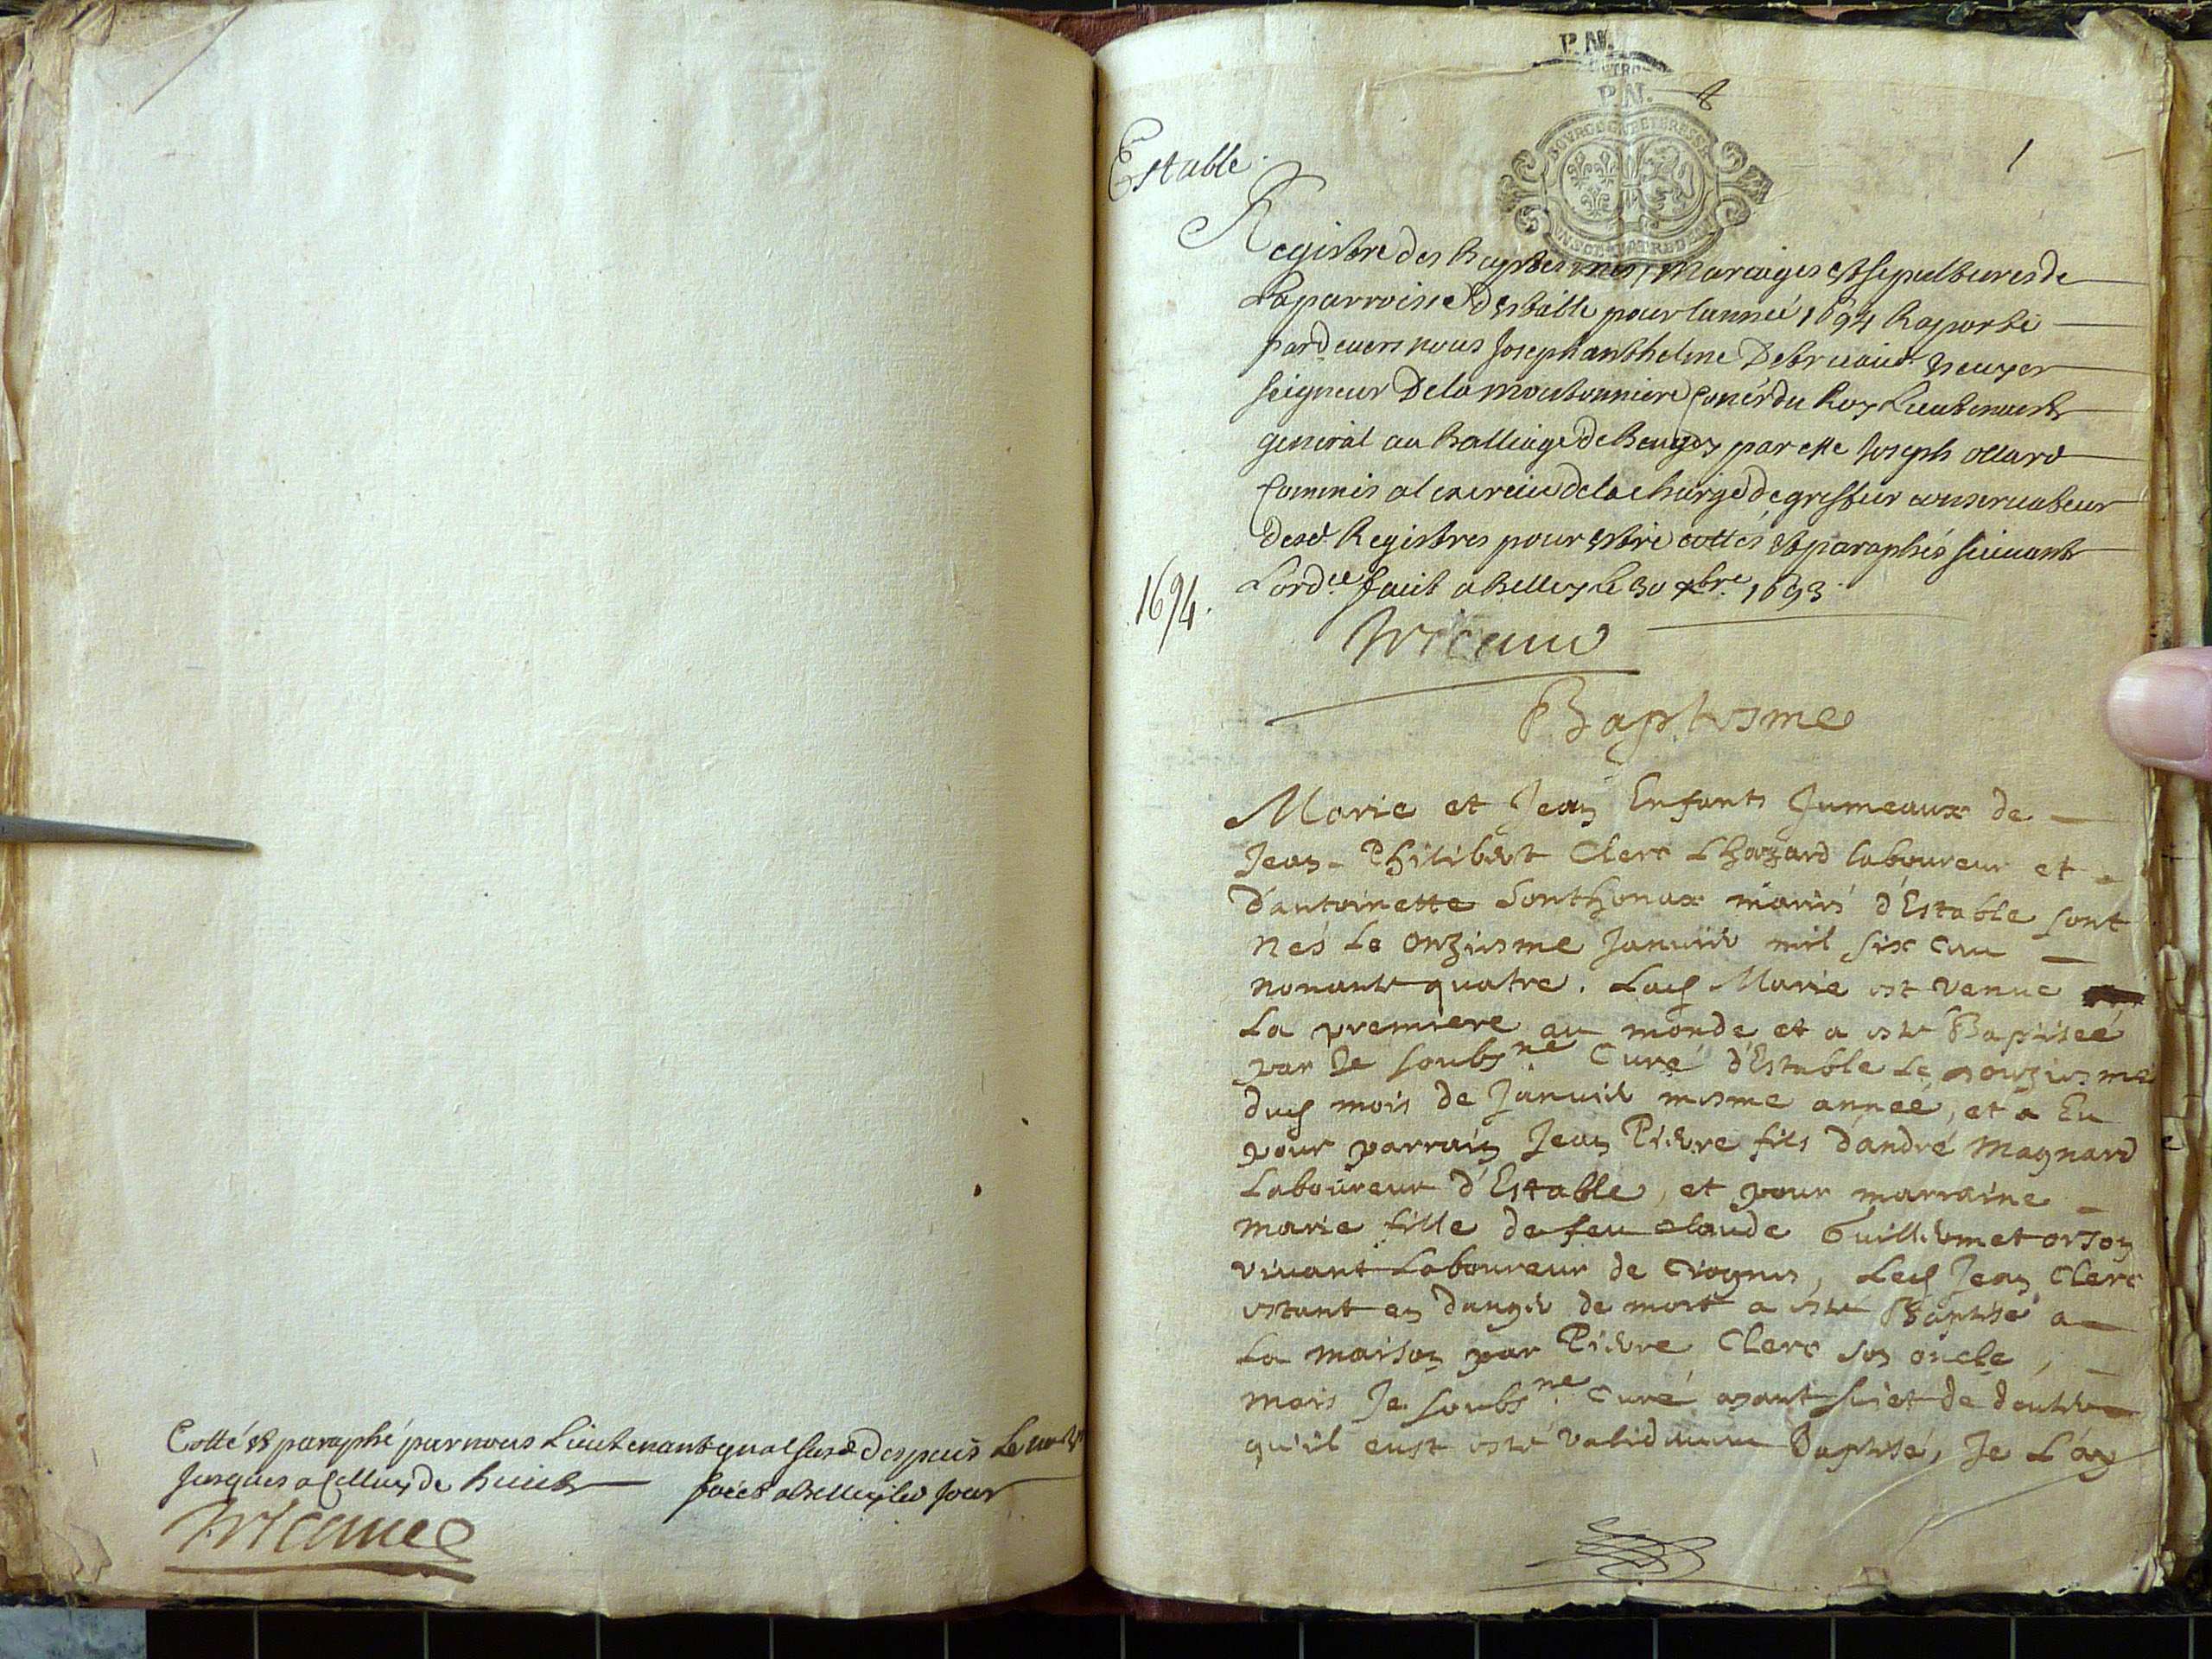 Cotté et paraphé par nous Lieutenant gnal susd despuis Le
Jusques a Celluy de huict faict a Belley led Jour
P. N.
P. N.
BOURGOGNE ET BRESSE
1
Estable
Registre des Baptesmes, Mariages et sepultures de
La parroisse d'Estable pour lannée 1694 Raporté
pardevers nous Joseph anthelme Escuyer
seigneur De la moutonniere Conér du Roy Lieutenant
general au Balliage de Beugey par Me Joseph ollard
Commis a lexercice de la charge de greffier conservateur
desd Registres pour estre cottés et paraphés suivant
Lordce faict a Belley le 30 xbre 1693
1694.
Baptesme
Marie et Jean Enfants Jumeaux de
Jean-Philibert Clerc Lhazard laboureur et
d'antoinette Sonthonax mariés d'Estable sont
nés le onziesme Janvier mil six cen
nonante quatre. Lad Marie est venue
La premiere au monde et a esté Baptisée
par Je soubsné Curé d'Estable Le onziesme
dud mois de Janvier mesme année, et a Eu
pour parrain Jean Pierre fils d'andré Magnard
Laboureur d'Estable, et pour marraine
marie fille de feu claude Guillermet orson
vivant Laboureur de Crognes, Led Jean Clerc
estant en danger de mort a esté Baptisé a
La maison par Pierre Clerc son oncle,
mais Je soubsné Curé ayant suiet de doutter
qu'il eust esté validemen Baptisé, Je L'ay